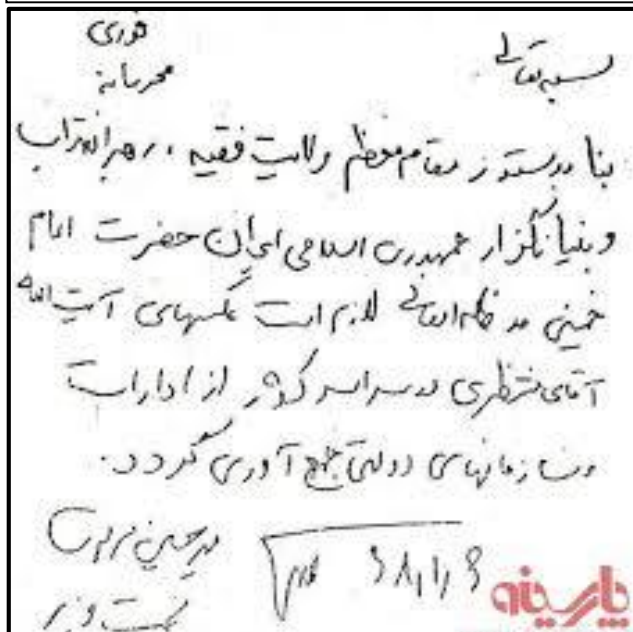 بسمه تعالی
فوری
محرمانه
بنا بدستور مقام معظم ولایت فقیه، رهبر انقلاب
و بنیانگزار جمهوری اسلامی ایران حضرت امام
خمینی مد ظله العالی لازم است عکسهای آیت الله
آقای منتظری در سراسر کشور از ادارات
و سازمانهای دولتی جمع آوری گردد.
میر حسین موسوی
نخست وزیر
پارسینه